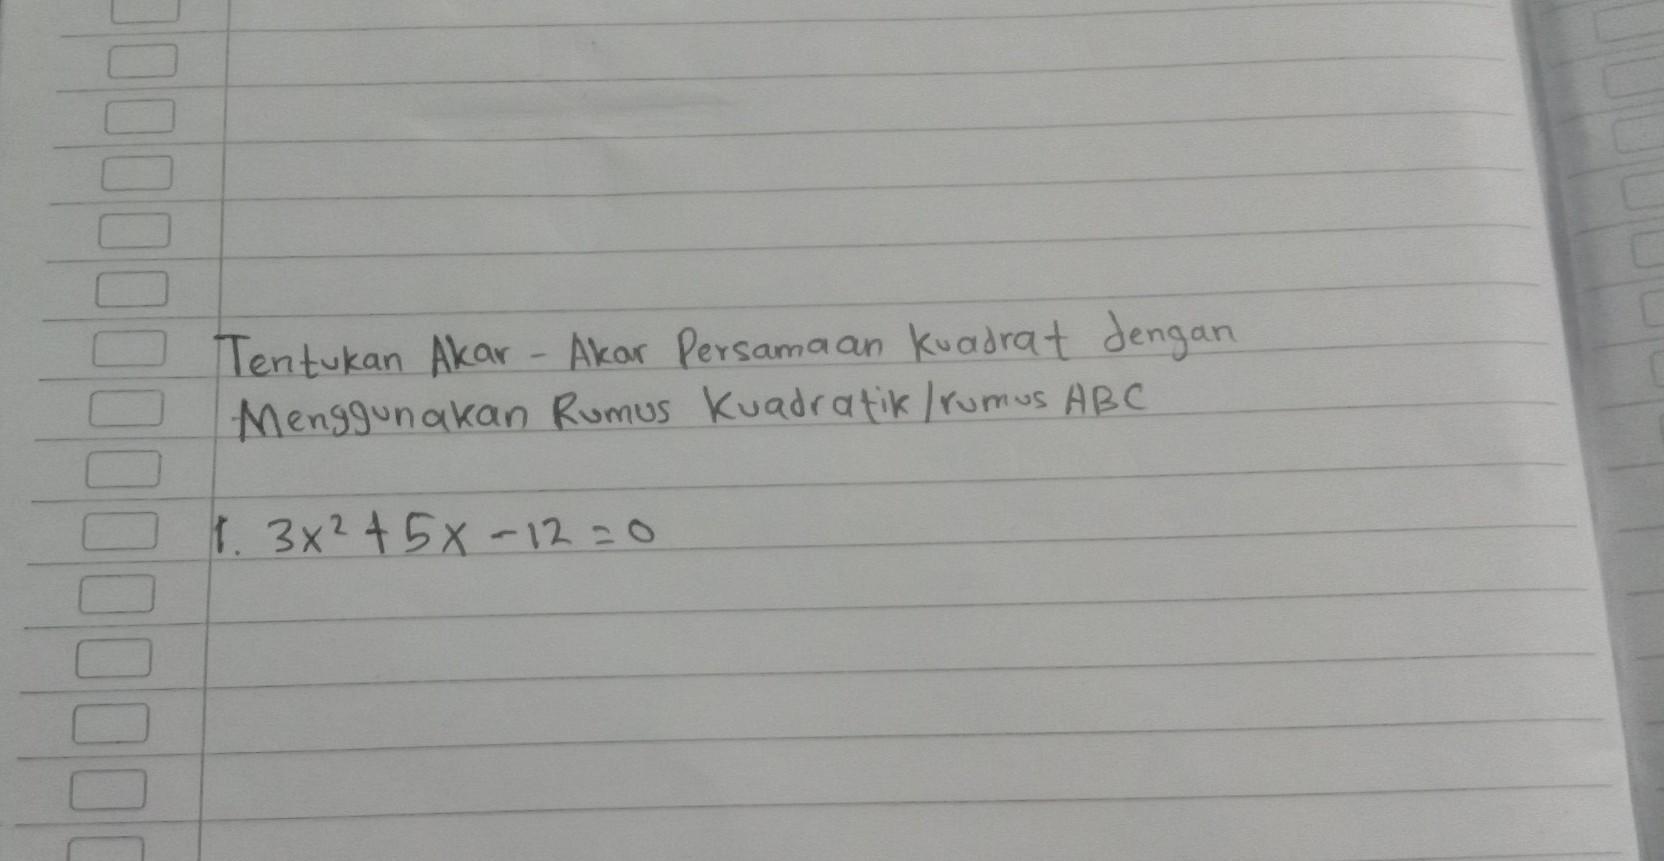 Tentukan Akar - Akar Persamaan Kuadrat dengan
Menggunakan Rumus Kuadratik/rumus ABC
1. 3x² + 5x - 12 = 0